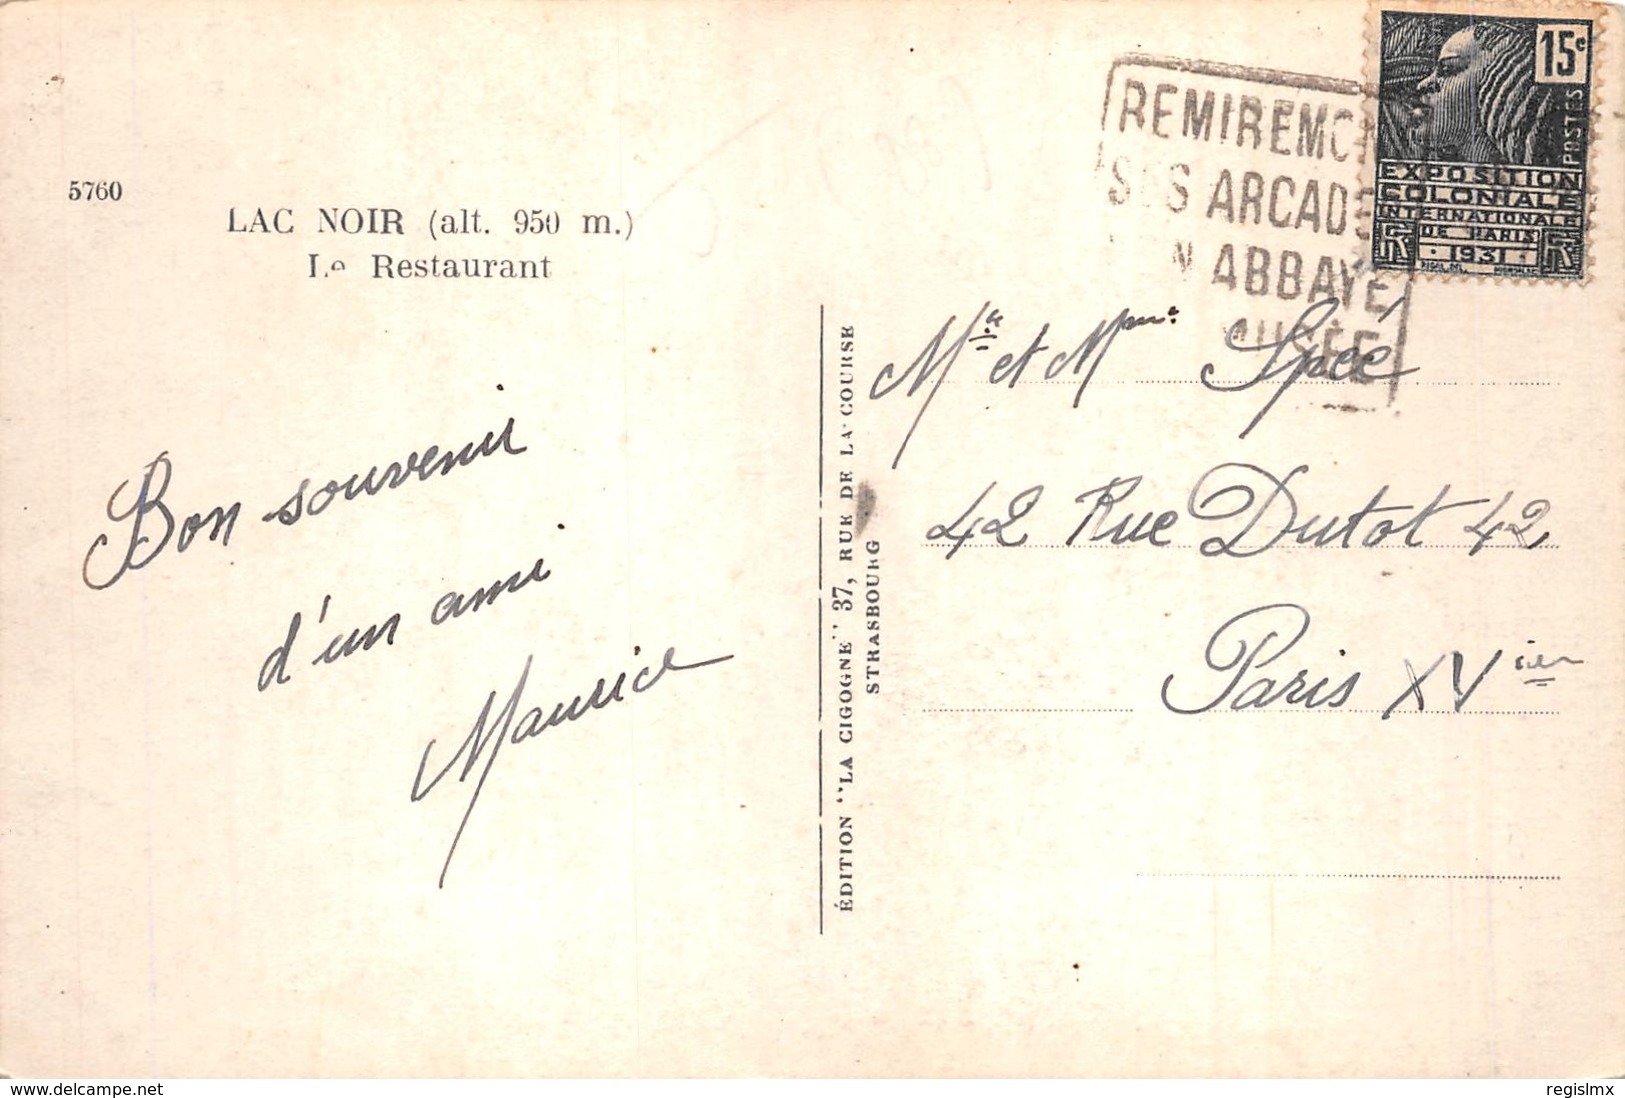 5760
LAC NOIR (alt. 950 m.)
Le Restaurant
Bon souvenir
d'un ami
Maurice
ÉDITION "LA CIGOGNE" 37, RUE DE LA COURSE
STRASBOURG
REMIREMO
SES ARCADES
ABBAYE
MUSÉE
15c
POSTES
EXPOSITION
COLONIALE
INTERNATIONALE
DE PARIS
RF · 1931 · RF
Mr et Mme Spéé
42 Rue Dutot 42
Paris XVier
www.delcampe.net
regislmx